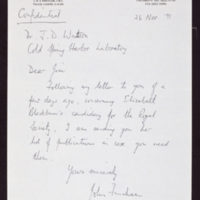 Confidential
26 Nov '91
Dr. J. D. Watson
Cold Spring Harbor Laboratory
Dear Jim
Following my letter to you of a
few days ago, concerning Elizabeth
Blackburn's candidacy for the Royal
Society, I am sending you her
list of publications in case you need
them.
Yours sincerely
John